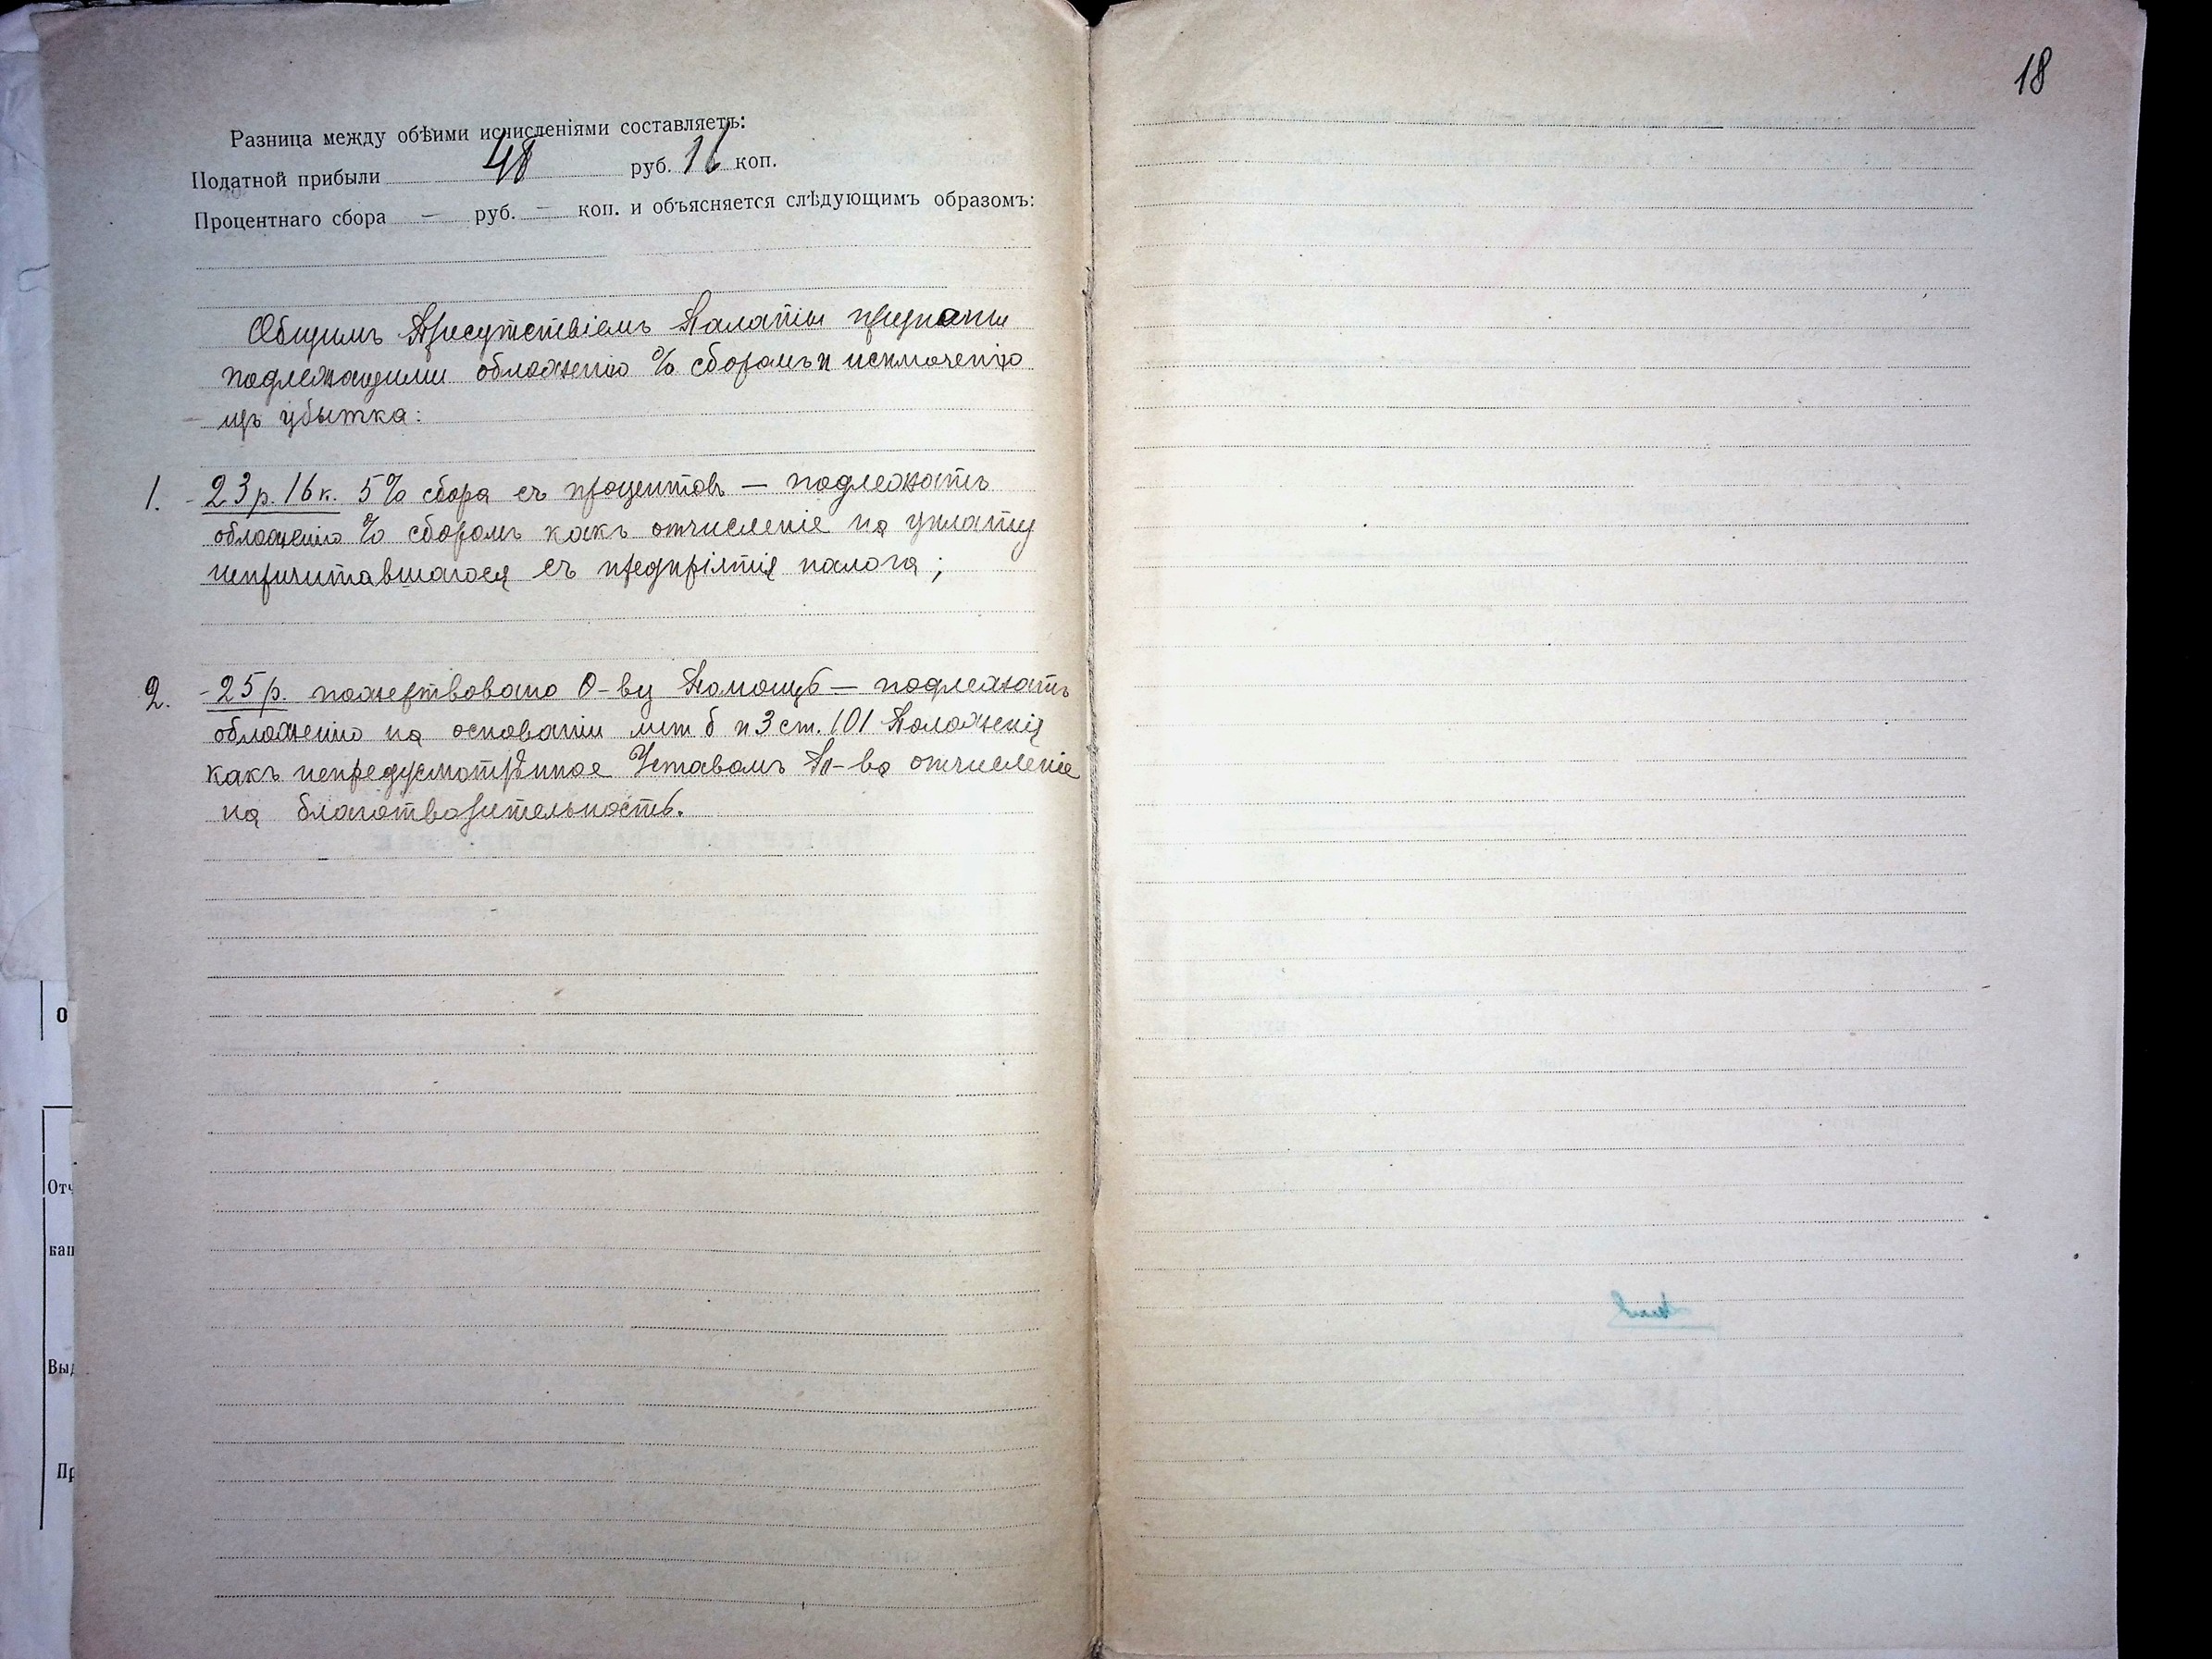 18
Разница между обѣими исчисленіями составляетъ:
Податной прибыли 48 руб. 16 коп.
Процентнаго сбора — руб. — коп. и объясняется слѣдующимъ образомъ:
Общимъ Присутствіемъ Палаты признаны
подлежащими обложенію % сборомъ и исключенію
изъ убытка:
1. - 23 р. 16 к. 5% сбора съ процентовъ — подлежатъ
обложенію % сборомъ какъ отчисленіе на уплату
непричитавшагося съ предпріятія налога;
2. - 25 р. пожертвовано О-ву Помощь — подлежатъ
обложенію на основаніи лит б п 3 ст. 101 Положенія
какъ непредусмотрѣнное Уставомъ Т-ва отчисленіе
на благотворительность.
О
Отч
кап
Выд
Пр